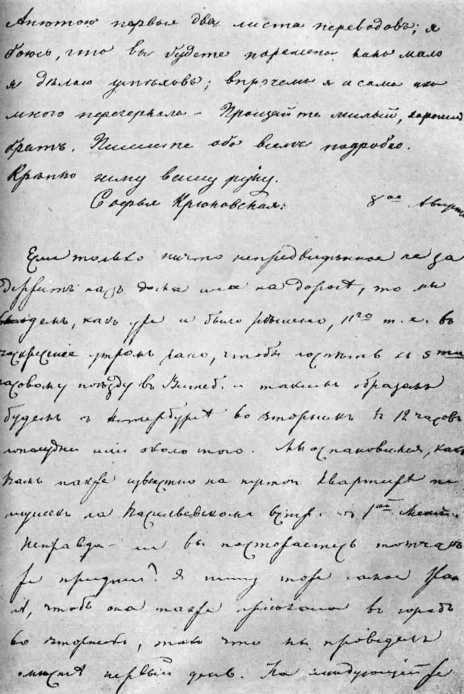 Анютою первые два листа переводовъ; я
боюсь, что вы будете поражены какъ мало
я дѣлаю успѣховъ; впрочемъ я и сама ихъ
много перечеркала – Прощайте милый, хорошій
братъ. Пишите обо всемъ подробно.
Крѣпко жму вашу руку.
Софья Крюковская.
8ое Августа
Если только ничто непредвидѣнное не за
держитъ насъ дома или на дорогѣ, то мы
выѣдемъ, какъ уже и было рѣшено, 11го т.е. въ
воскресеніе утромъ рано, чтобы поспѣть къ 5ти
часовому поѣзду въ Витеб. и такимъ образомъ
будемъ въ Петербургѣ во вторникъ въ 12 часовъ
пополудни или около того. Мы остановимся, какъ
вамъ также извѣстно на пустой квартирѣ те
тушекъ на Васильевскомъ остр. въ 1ой
Неправда-ли вы постараетесь тотчасъ
же придти? Я пишу тоже самое
чтобы она также пріѣхала въ городъ
во вторникъ, такъ что мы проведемъ
вмѣстѣ первый день. На слѣдующій же